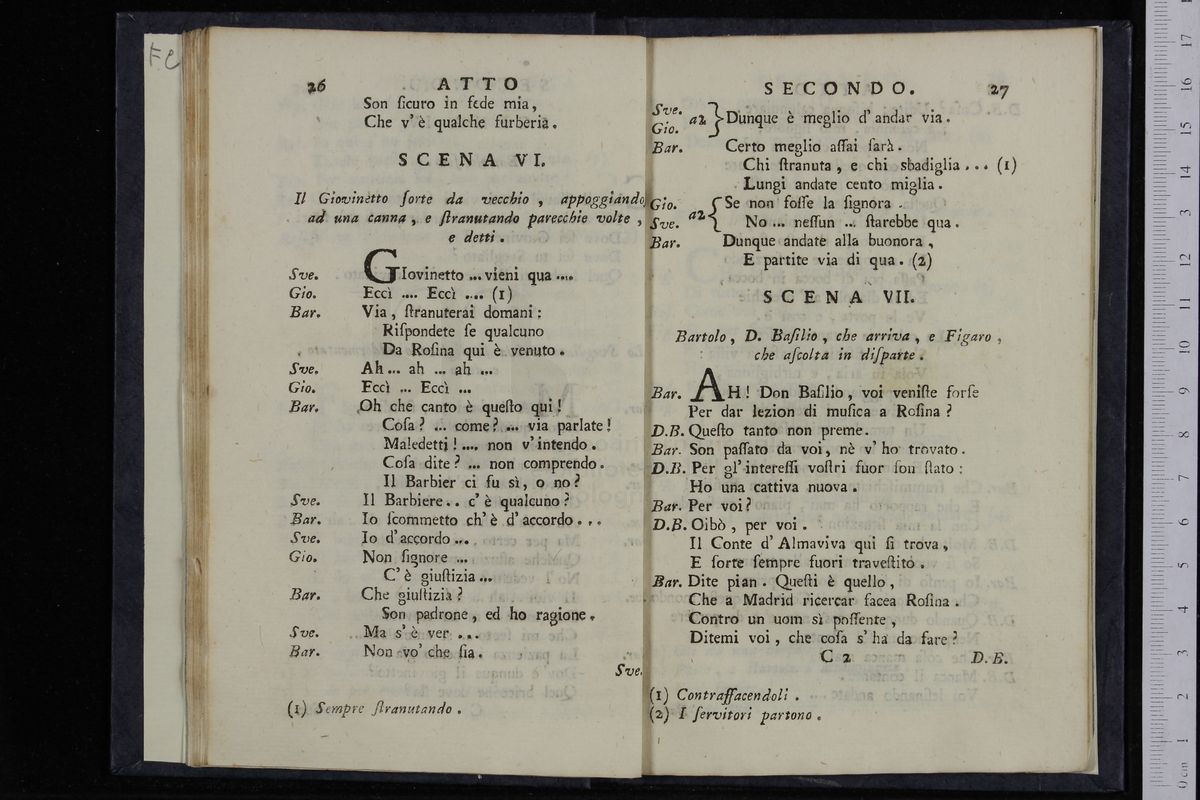 FC
26 ATTO
Son ſicuro in fede mia,
Che v'è qualche furberia.
SCENA VI.
Il Giovinetto ſorte da vecchio, appoggiando
ad una canna, e ſtranutando parecchie volte,
e detti.
Sve. GIovinetto ... vieni qua ....
Gio. Eccì .... Eccì .... (1)
Bar. Via, ſtranuterai domani:
Riſpondete ſe qualcuno
Da Roſina qui è venuto.
Sve. Ah ... ah ... ah ...
Gio. Eccì ... Eccì ...
Bar. Oh che canto è queſto qui!
Coſa? ... come? ... via parlate!
Maledetti! .... non v'intendo.
Coſa dite? ... non comprendo.
Il Barbier ci fu sì, o no?
Sve. Il Barbiere.. c'è qualcuno?
Bar. Io ſcommetto ch'è d'accordo...
Sve. Io d'accordo ...
Gio. Non ſignore ...
C'è giuſtizia ...
Bar. Che giuſtizia?
Son padrone, ed ho ragione.
Sve. Ma s'è ver ...
Bar. Non vo' che ſia.
Sve.
(1) Sempre ſtranutando.
SECONDO. 27
Sve.
Gio. a2 } Dunque è meglio d'andar via.
Bar. Certo meglio aſſai ſarà.
Chi ſtranuta, e chi sbadiglia... (1)
Lungi andate cento miglia.
Gio. a2 { Se non foſſe la ſignora
Sve. No ... neſſun ... ſtarebbe qua.
Bar. Dunque andate alla buonora,
E partite via di qua. (2)
SCENA VII.
Bartolo, D. Baſilio, che arriva, e Figaro,
che aſcolta in diſparte.
Bar. AH! Don Baſilio, voi veniſte forſe
Per dar lezion di muſica a Roſina?
D.B. Queſto tanto non preme.
Bar. Son paſſato da voi, nè v'ho trovato.
D.B. Per gl'intereſſi voſtri fuor ſon ſtato:
Ho una cattiva nuova.
Bar. Per voi?
D.B. Oibò, per voi.
Il Conte d'Almaviva qui ſi trova,
E ſorte ſempre fuori traveſtito.
Bar. Dite pian. Queſti è quello,
Che a Madrid ricercar facea Roſina.
Contro un uom sì poſſente,
Ditemi voi, che coſa s'ha da fare?
C 2 D. B.
(1) Contraffacendoli.
(2) I ſervitori partono.
0 cm 1 2 3 4 5 6 7 8 9 10 11 12 13 14 15 16 17